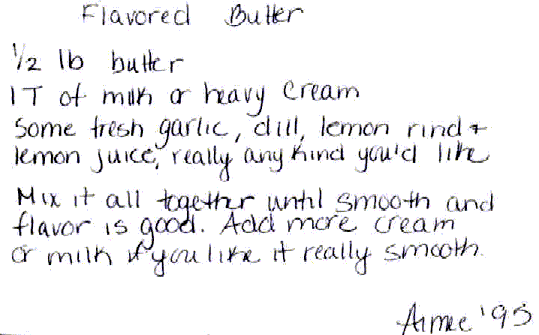 Flavored Butter
1/2 lb butter
1 T of milk or heavy cream
some fresh garlic, dill, lemon rind +
lemon juice, really any kind you'd like
Mix it all together until smooth and
flavor is good. Add more cream
or milk if you like it really smooth.
Aimee '95